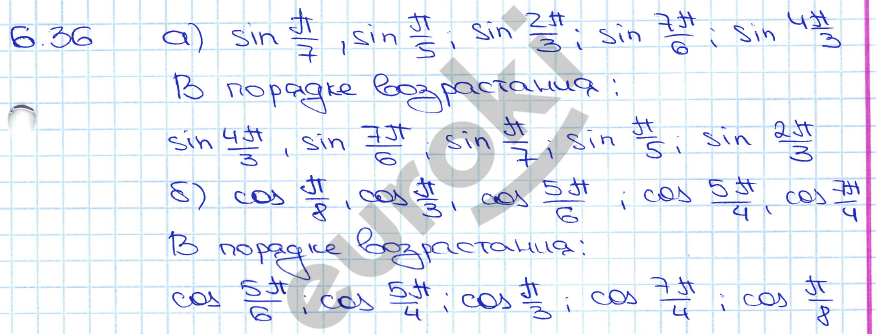 6.36 а) sin π/7, sin π/5; sin 2π/3; sin 7π/6; sin 4π/3
В порядке возрастания:
sin 4π/3, sin 7π/6; sin π/7; sin π/5; sin 2π/3
б) cos π/8, cos π/3, cos 5π/6; cos 5π/4, cos 7π/4
В порядке возрастания:
cos 5π/6; cos 5π/4; cos π/3; cos 7π/4; cos π/8
euroki